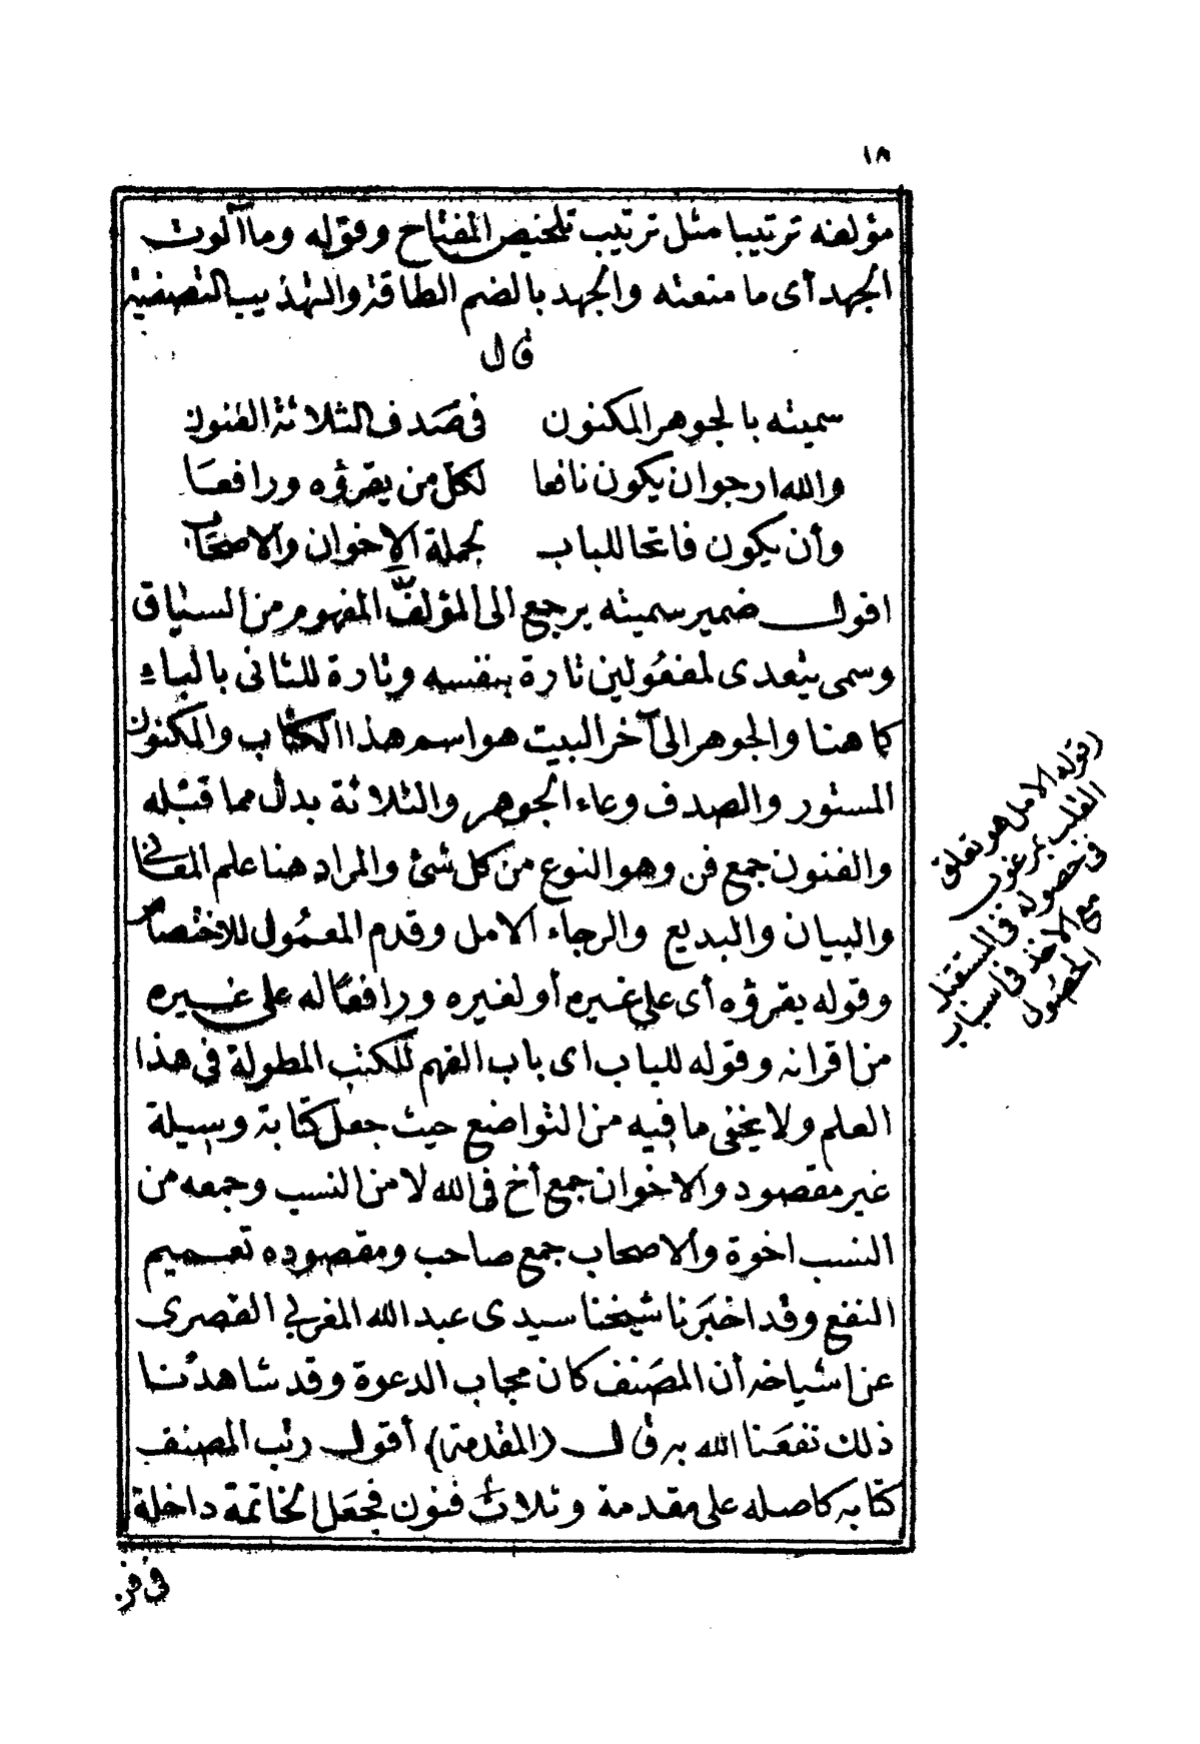 ١٨
مؤلفه ترتيبا مثل ترتيب تلخيص المفتاح وقوله وما آلوت
الجهد أى ما منعته والجهد بالضم الطاقة والتهذيب التصفية
قال
سميته بالجوهر المكنون في صَدف الثلاثة الفنون
والله ارجو ان يكون نافعا لكل من يقرؤه ورافعَا
وأن يكون فاتحا للباب لجملة الاخوان والاصحاب
اقول ضمير سميته يرجع الى المؤلَّف المفهوم من السياق
وسمى يتعدى لمفعُولين تارة بنفسه وتارة للثانى بالباء
كما هنا والجوهر الى آخر البيت هو اسم هذا الكتاب والمكنون
المستور والصدف وعاء الجوهر والثلاثة بدل مما قبله
والفنون جمع فن وهو النوع من كل شئ والمراد هنا علم المعانى
والبيان والبديع والرجاء الامل وقدم المعمُول للاختصاص
وقوله يقرؤه أى على غيره أو لغيره ورافعًا له على غيره
من اقرانه وقوله للباب اى باب الفهم للكتب المطولة فى هذا
العلم ولا يخفى ما فيه من التواضع حيث جعل كتابه وسيلة
غير مقصود والاخوان جمع أخ فى الله لا من النسب وجمعه من
النسب اخوة والاصحاب جمع صاحب ومقصوده تعميم
النفع وقد اخبَرنا شيخنا سيدى عبد الله المغربي القصرى
عن اشياخه أن المصَنف كان مجاب الدعوة وقد شاهدنا
ذلك نفعَنا الله به قال (المقدمة) أقول رتب المصنف
كتابه كاصله على مقدمة وثلاث فنون فجعَل الخاتمة داخلة
فى فن
(قوله الامل هو تعلق
القلب بمرغوب
فى حصوله فى المستقبل
مع الاخذ فى اسباب
الحصُول